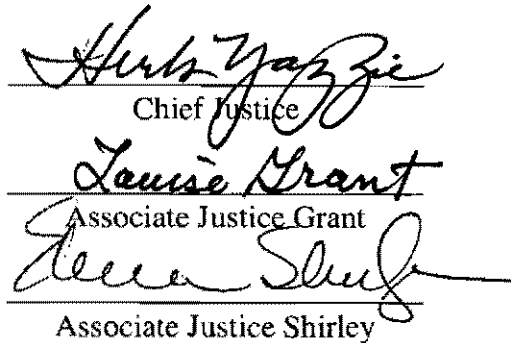 Herb Yazzie
Chief Justice
Louise Grant
Associate Justice Grant
Eleanor Shirley
Associate Justice Shirley